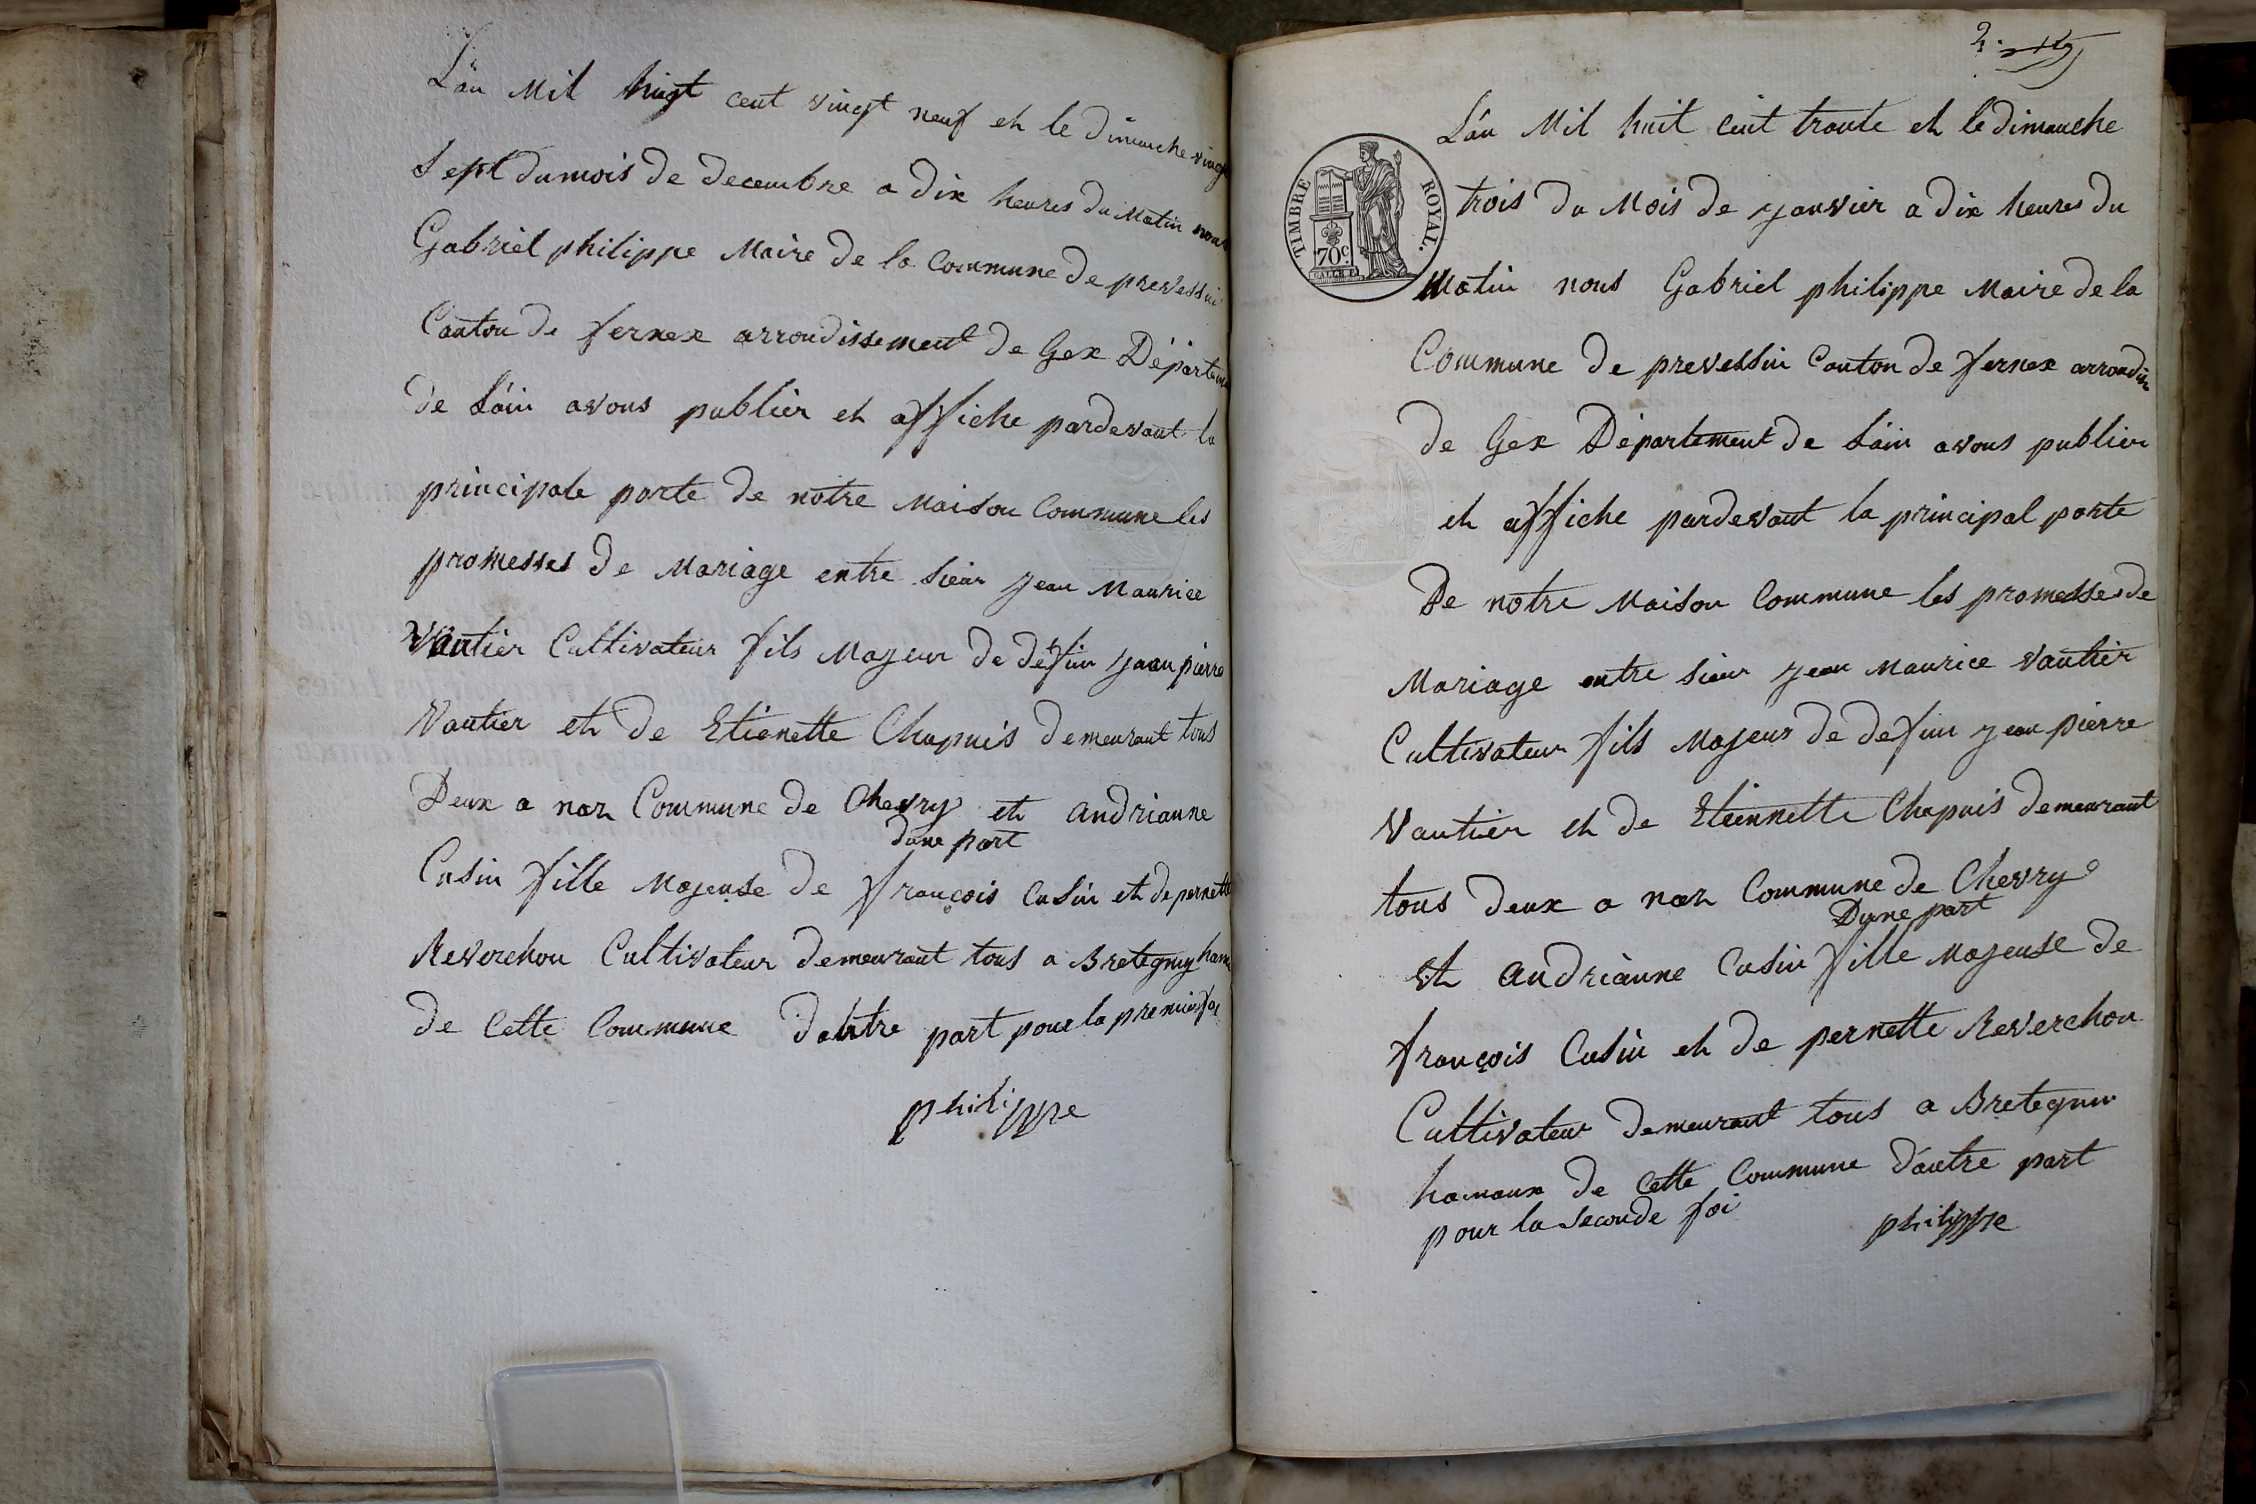 L'an Mil huit cent vingt neuf et le Dimanche vingt
Sept du mois de decembre a dix heures du Matin nous
Gabriel philippe Maire de la Commune de prevessin
Canton de fernex arrondissement de Gex Départeme
de L'ain avons publier et affiche pardevant la
principale porte de notre Maison Commune les
promesses de Mariage entre sieur jean Maurice
Vautier Cultivateur fils Majeur de défun jean pierre
Vautier et de Etienette Chapuis demeurant tous
Deux a naz Commune de Chevry et andrianne
dune part
Cusin fille Majeuse de françois Cusin et de pernette
Reverchon Cultivateur demeurant tous a Bretegny ham
de Cette Commune dautre part pour la premier foi
philippe
2
L'an Mil huit cent trante et le dimanche
trois du Mois de janvier a dix heures du
TIMBRE ROYAL.
70c.
Matin nous Gabriel philippe Maire de la
Commune de prevessin Canton de fernex arrondis
de Gex Département de L'ain avons publier
et affiche pardevant la principal porte
De notre Maison Commune les promesses de
Mariage entre sieur jean Maurice Vautier
Cultivateur fils Majeur de defun jean pierre
Vautier et de Eteinnette Chapuis demeurant
tous deux a naz Commune de Chevry
Dune part
Et andrianne Cusin fille Majeuse de
françois Cusin et de pernette Reverchon
Cultivateur demeurant tous a Bretegnw
hamaux de Cette Commune d'autre part
pour la seconde foi
philippe